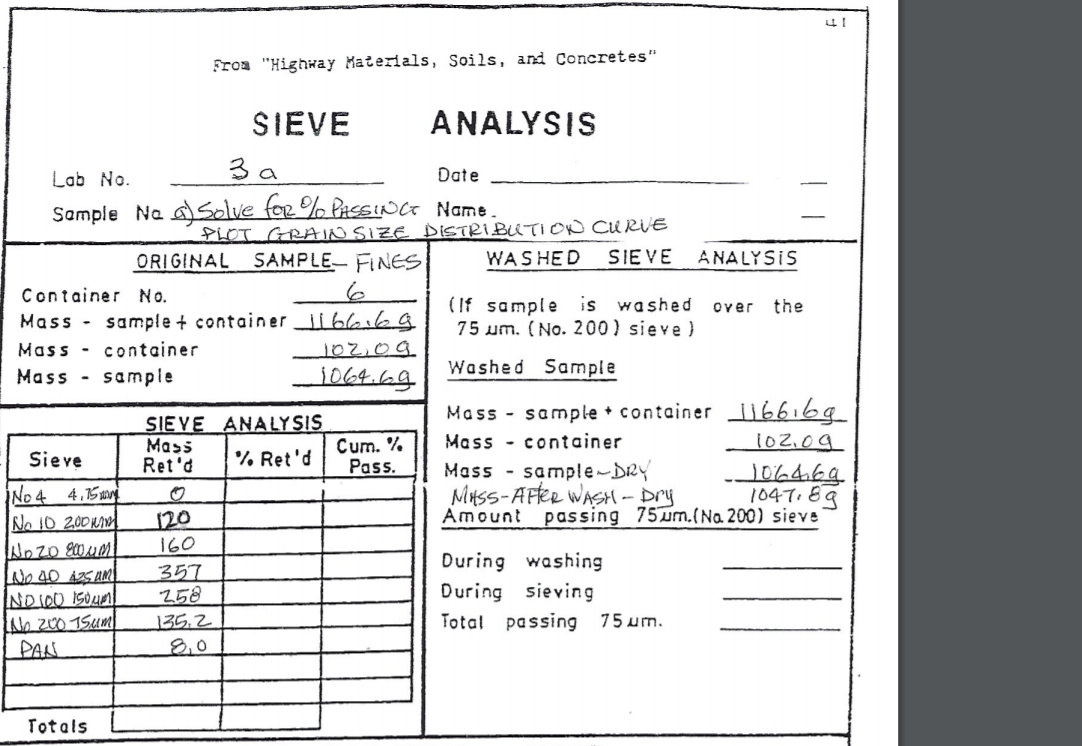 41
From "Highway Materials, Soils, and Concretes"
SIEVE ANALYSIS
Lab No. 3a Date
Sample No a) Solve for % PASSING Name
PLOT GRAIN SIZE DISTRIBUTION CURVE
ORIGINAL SAMPLE - FINES
Container No. 6
Mass - sample + container 1166.6g
Mass - container 102.0g
Mass - sample 1064.6g
SIEVE ANALYSIS
Sieve Mass Ret'd % Ret'd Cum. % Pass.
No 4 4.75mm 0
No 10 2.00mm 120
No 20 800µm 160
No 40 425µm 357
NO 100 150µm 258
No 200 75µm 135.2
PAN 8.0
Totals
WASHED SIEVE ANALYSIS
(If sample is washed over the
75 µm. (No. 200) sieve)
Washed Sample
Mass - sample + container 1166.6g
Mass - container 102.0g
Mass - sample - DRY 1064.6g
MASS - AFTER WASH - Dry 1047.8g
Amount passing 75µm. (No.200) sieve
During washing
During sieving
Total passing 75µm.